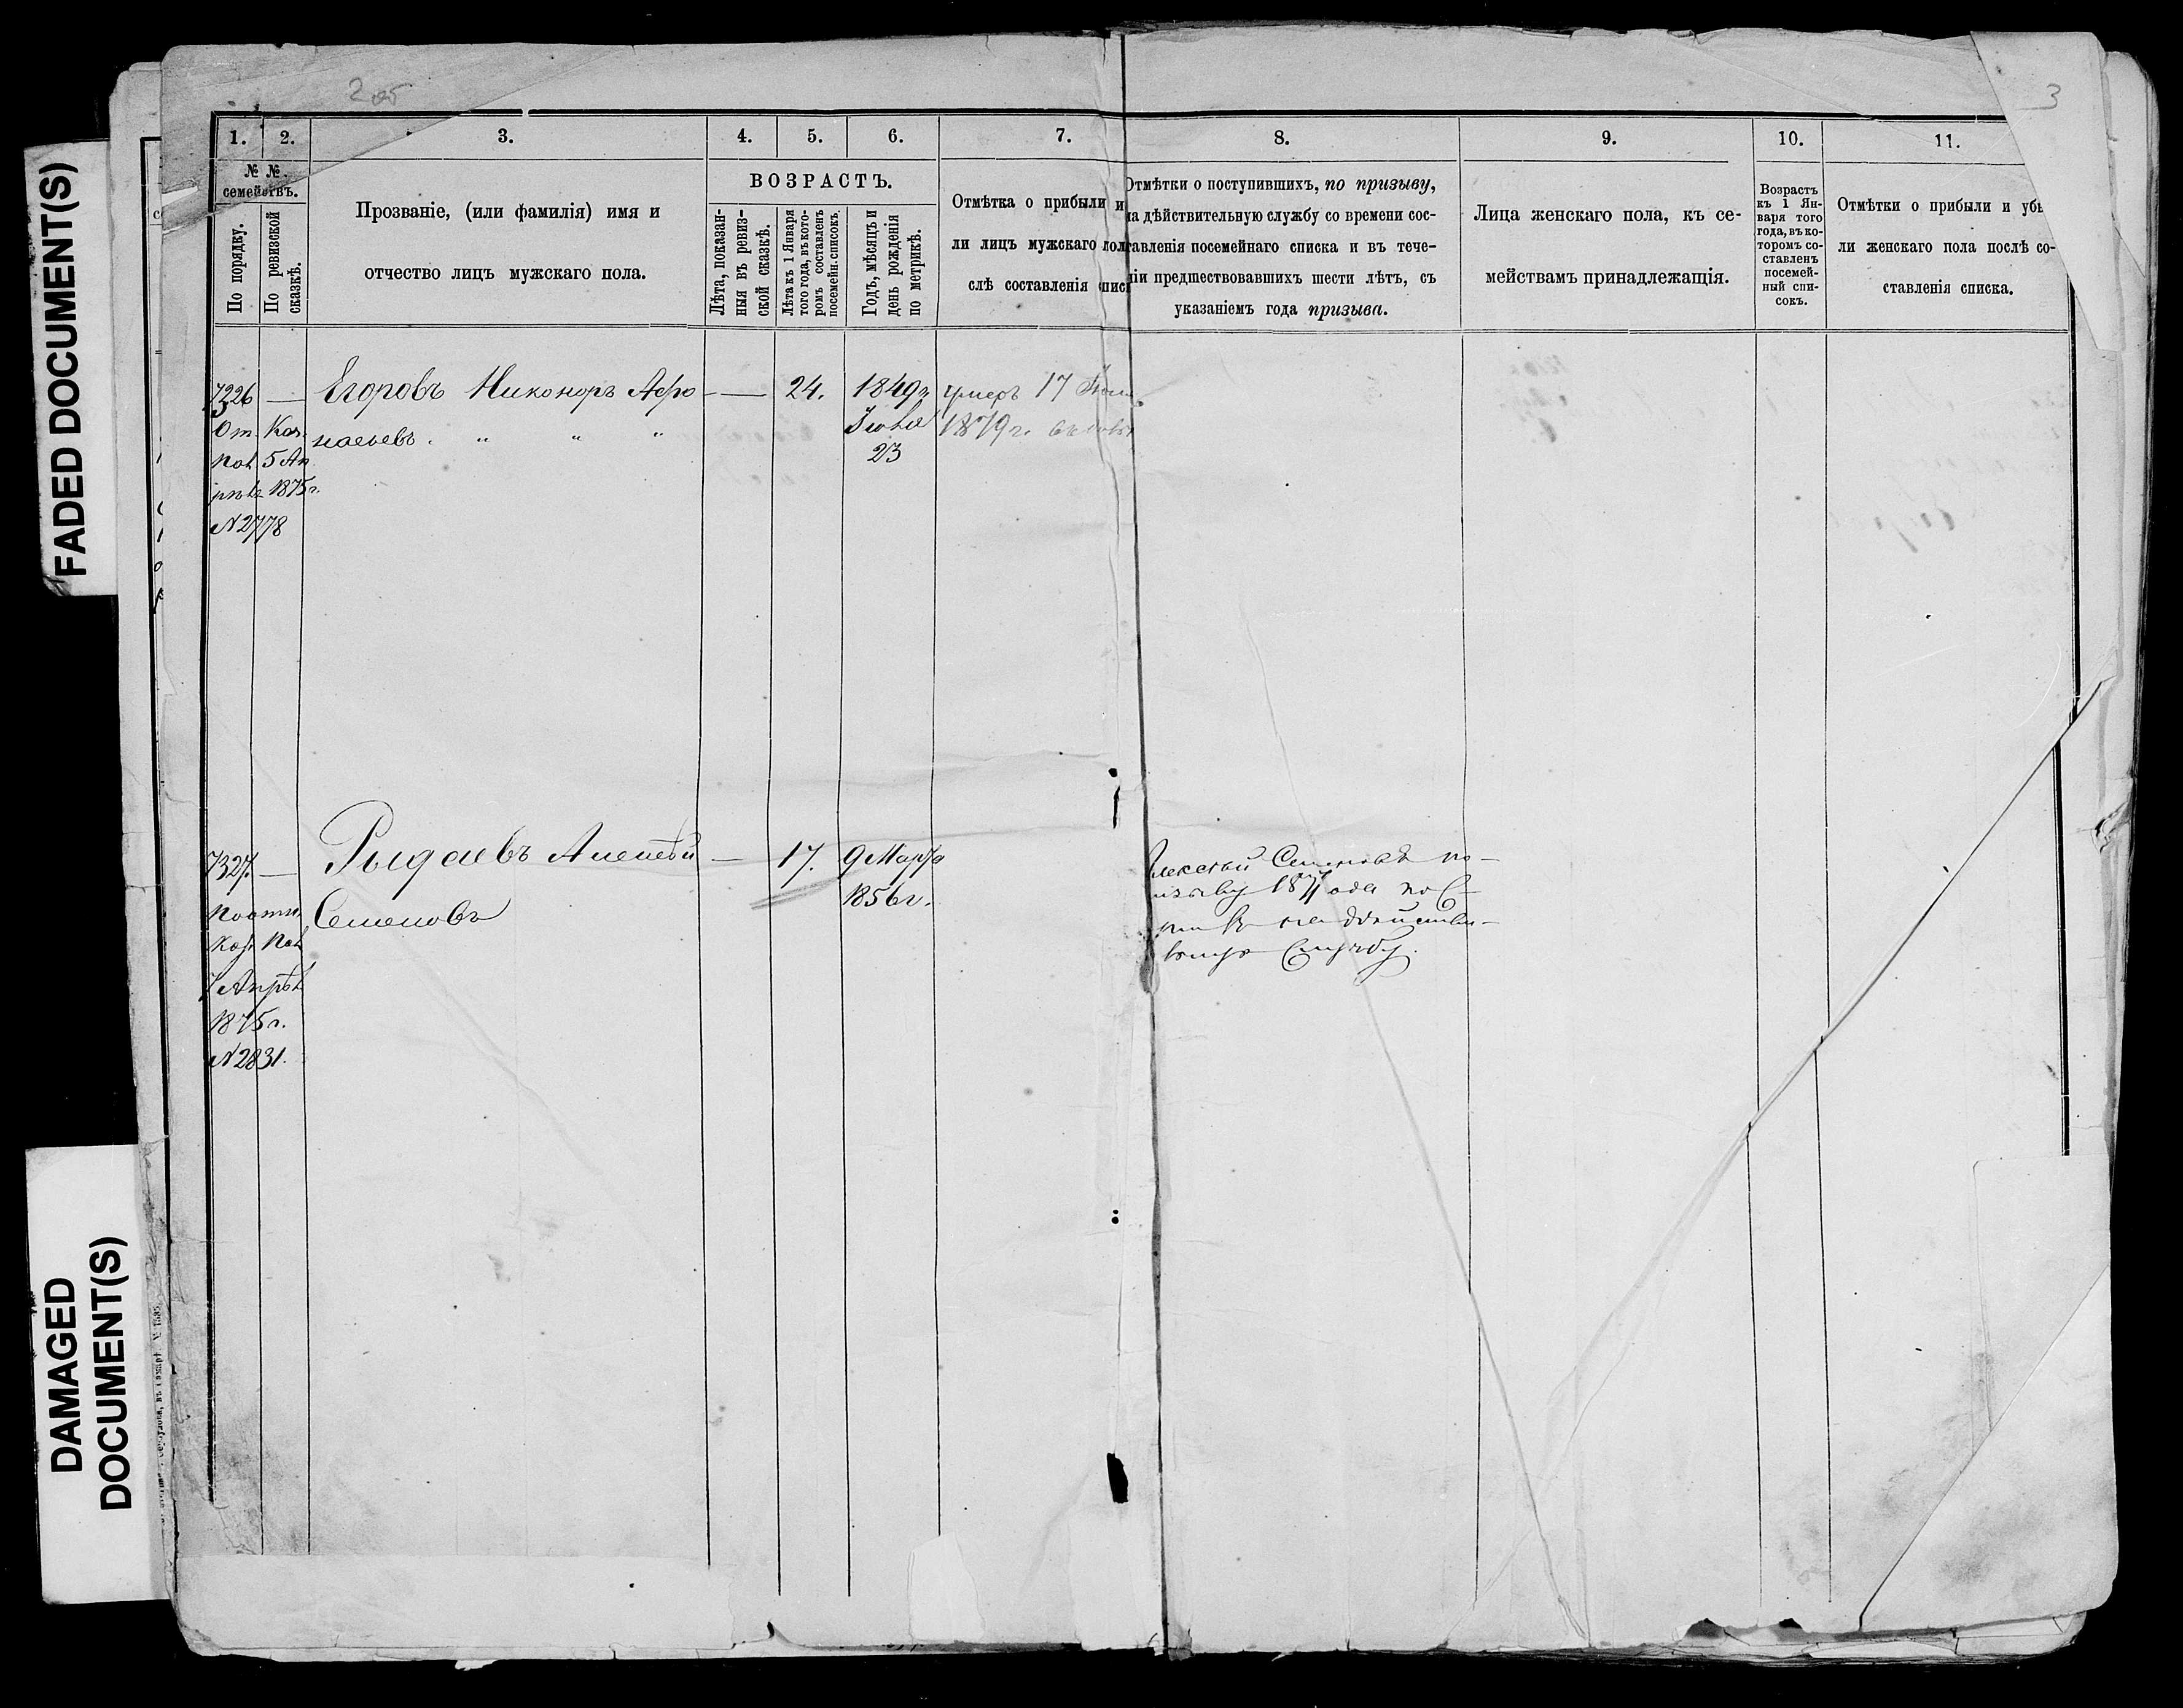 FADED DOCUMENT(S)
DAMAGED
DOCUMENT(S)
2 об
3
1.
2.
3.
4.
5.
6.
7.
8.
9.
10.
11.
№ №
семействъ.
По порядку.
По ревизской
сказкѣ.
Прозваніе, (или фамилія) имя и
отчество лицъ мужскаго пола.
ВОЗРАСТЪ.
Лѣта, показан-
ныя въ ревиз-
ской сказкѣ.
Лѣта къ 1 Января
того года, въ кото-
ромъ составленъ
посемейн. списокъ.
Годъ, мѣсяцъ и
день рожденія
по метрикѣ.
Отмѣтка о прибыли и
ли лицъ мужскаго пол
слѣ составленія спис
Отмѣтки о поступившихъ, по призыву,
на дѣйствительную службу со времени сос-
тавленія посемейнаго списка и въ тече-
ніи предшествовавшихъ шести лѣтъ, съ
указаніемъ года призыва.
Лица женскаго пола, къ се-
мействамъ принадлежащія.
Возрастъ
къ 1 Ян-
варя того
года, въ ко-
торомъ со-
ставленъ
посемей-
ный спи-
сокъ.
Отмѣтки о прибыли и убы
ли женскаго пола послѣ со-
ставленія списка.
7326 — Егоровъ Никоноръ Афо- — 24. 1849 г. умеръ 17
От. Каз. насьевъ. " " " Іюля 1879 г.
Пал 5 Ап 23
рѣля 1875 г.
№ 2778
7327. — Рыдаевъ Алексѣй — 17. 9 Марта
1856 г.
Семеновъ
Каз. Пал
7 Апрѣл
1875 г.
№ 2831.
Алексѣй Семеновъ по
призыву года пос
на дѣйстви-
службу.